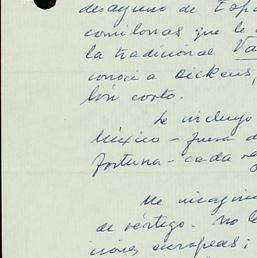 desayuno de Esp
comilonas que le
la tradicional Va
conocí a Dickens,
lón corto.
Le incluyo
México - fuera d
fortuna - cada ve
Me imagino
de vértigo - no le
ciones europeas;